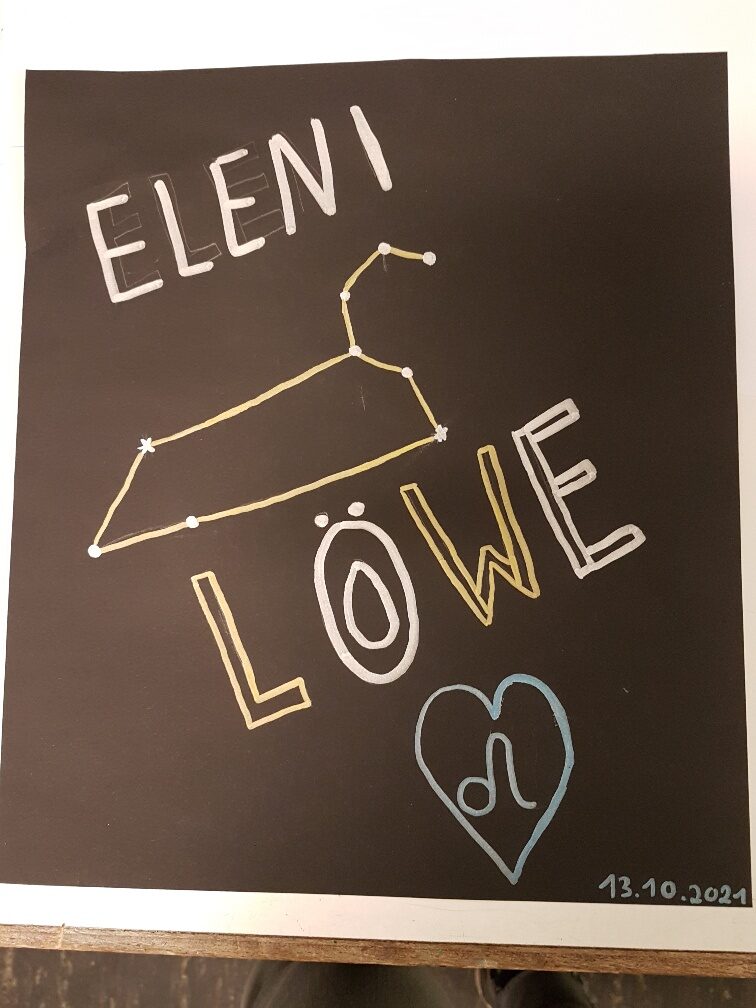 ELENI
LÖWE
♌
13.10.2021